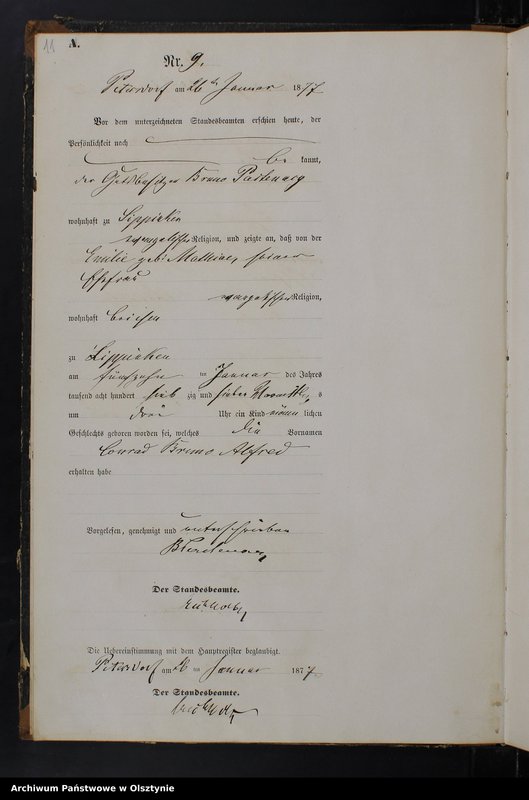 11
A.
Nr. 9.
Petersdorf am 26 ten Januar 1877
Vor dem unterzeichneten Standesbeamten erschien heute, der
Persönlichkeit nach
be kannt,
der Gutsbesitzer Bruno
wohnhaft zu Lippinken
evangelischer Religion, und zeigte an, daß von der
Emilie geb: seiner
Ehefrau
evangelischer Religion,
wohnhaft bei ihm
zu Lippinken
am fünfzehn ten Januar des Jahres
tausend acht hundert sieb zig und sieben Nachmittags
um drei Uhr ein Kind männ lichen
Geschlechts geboren worden sei, welches die Vornamen
Conrad Bruno Alfred
erhalten habe
Vorgelesen, genehmigt und unterschrieben
Der Standesbeamte.
Die Uebereinstimmung mit dem Hauptregister beglaubigt.
Petersdorf am 26 ten Januar 1877
Der Standesbeamte.
Archiwum Państwowe w Olsztynie